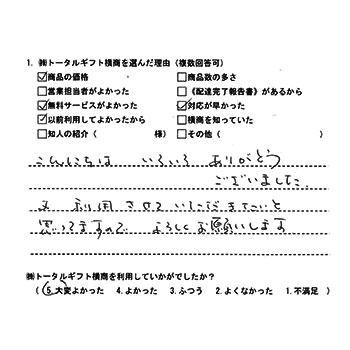 1. ㈱トータルギフト横商を選んだ理由（複数回答可）
☑商品の価格 □商品数の多さ
□営業担当者がよかった □《配達完了報告書》があるから
☑無料サービスがよかった ☑対応が早かった
☑以前利用してよかったから □横商を知っていた
□知人の紹介（ 様） □その他（ ）
こんにちは いろいろ ありがとう
ございました。
又 利用 させて いただきたいと
思ってますので よろしくお願いします
㈱トータルギフト横商を利用していかがでしたか？
（ 5.大変よかった 4.よかった 3.ふつう 2.よくなかった 1.不満足 ）